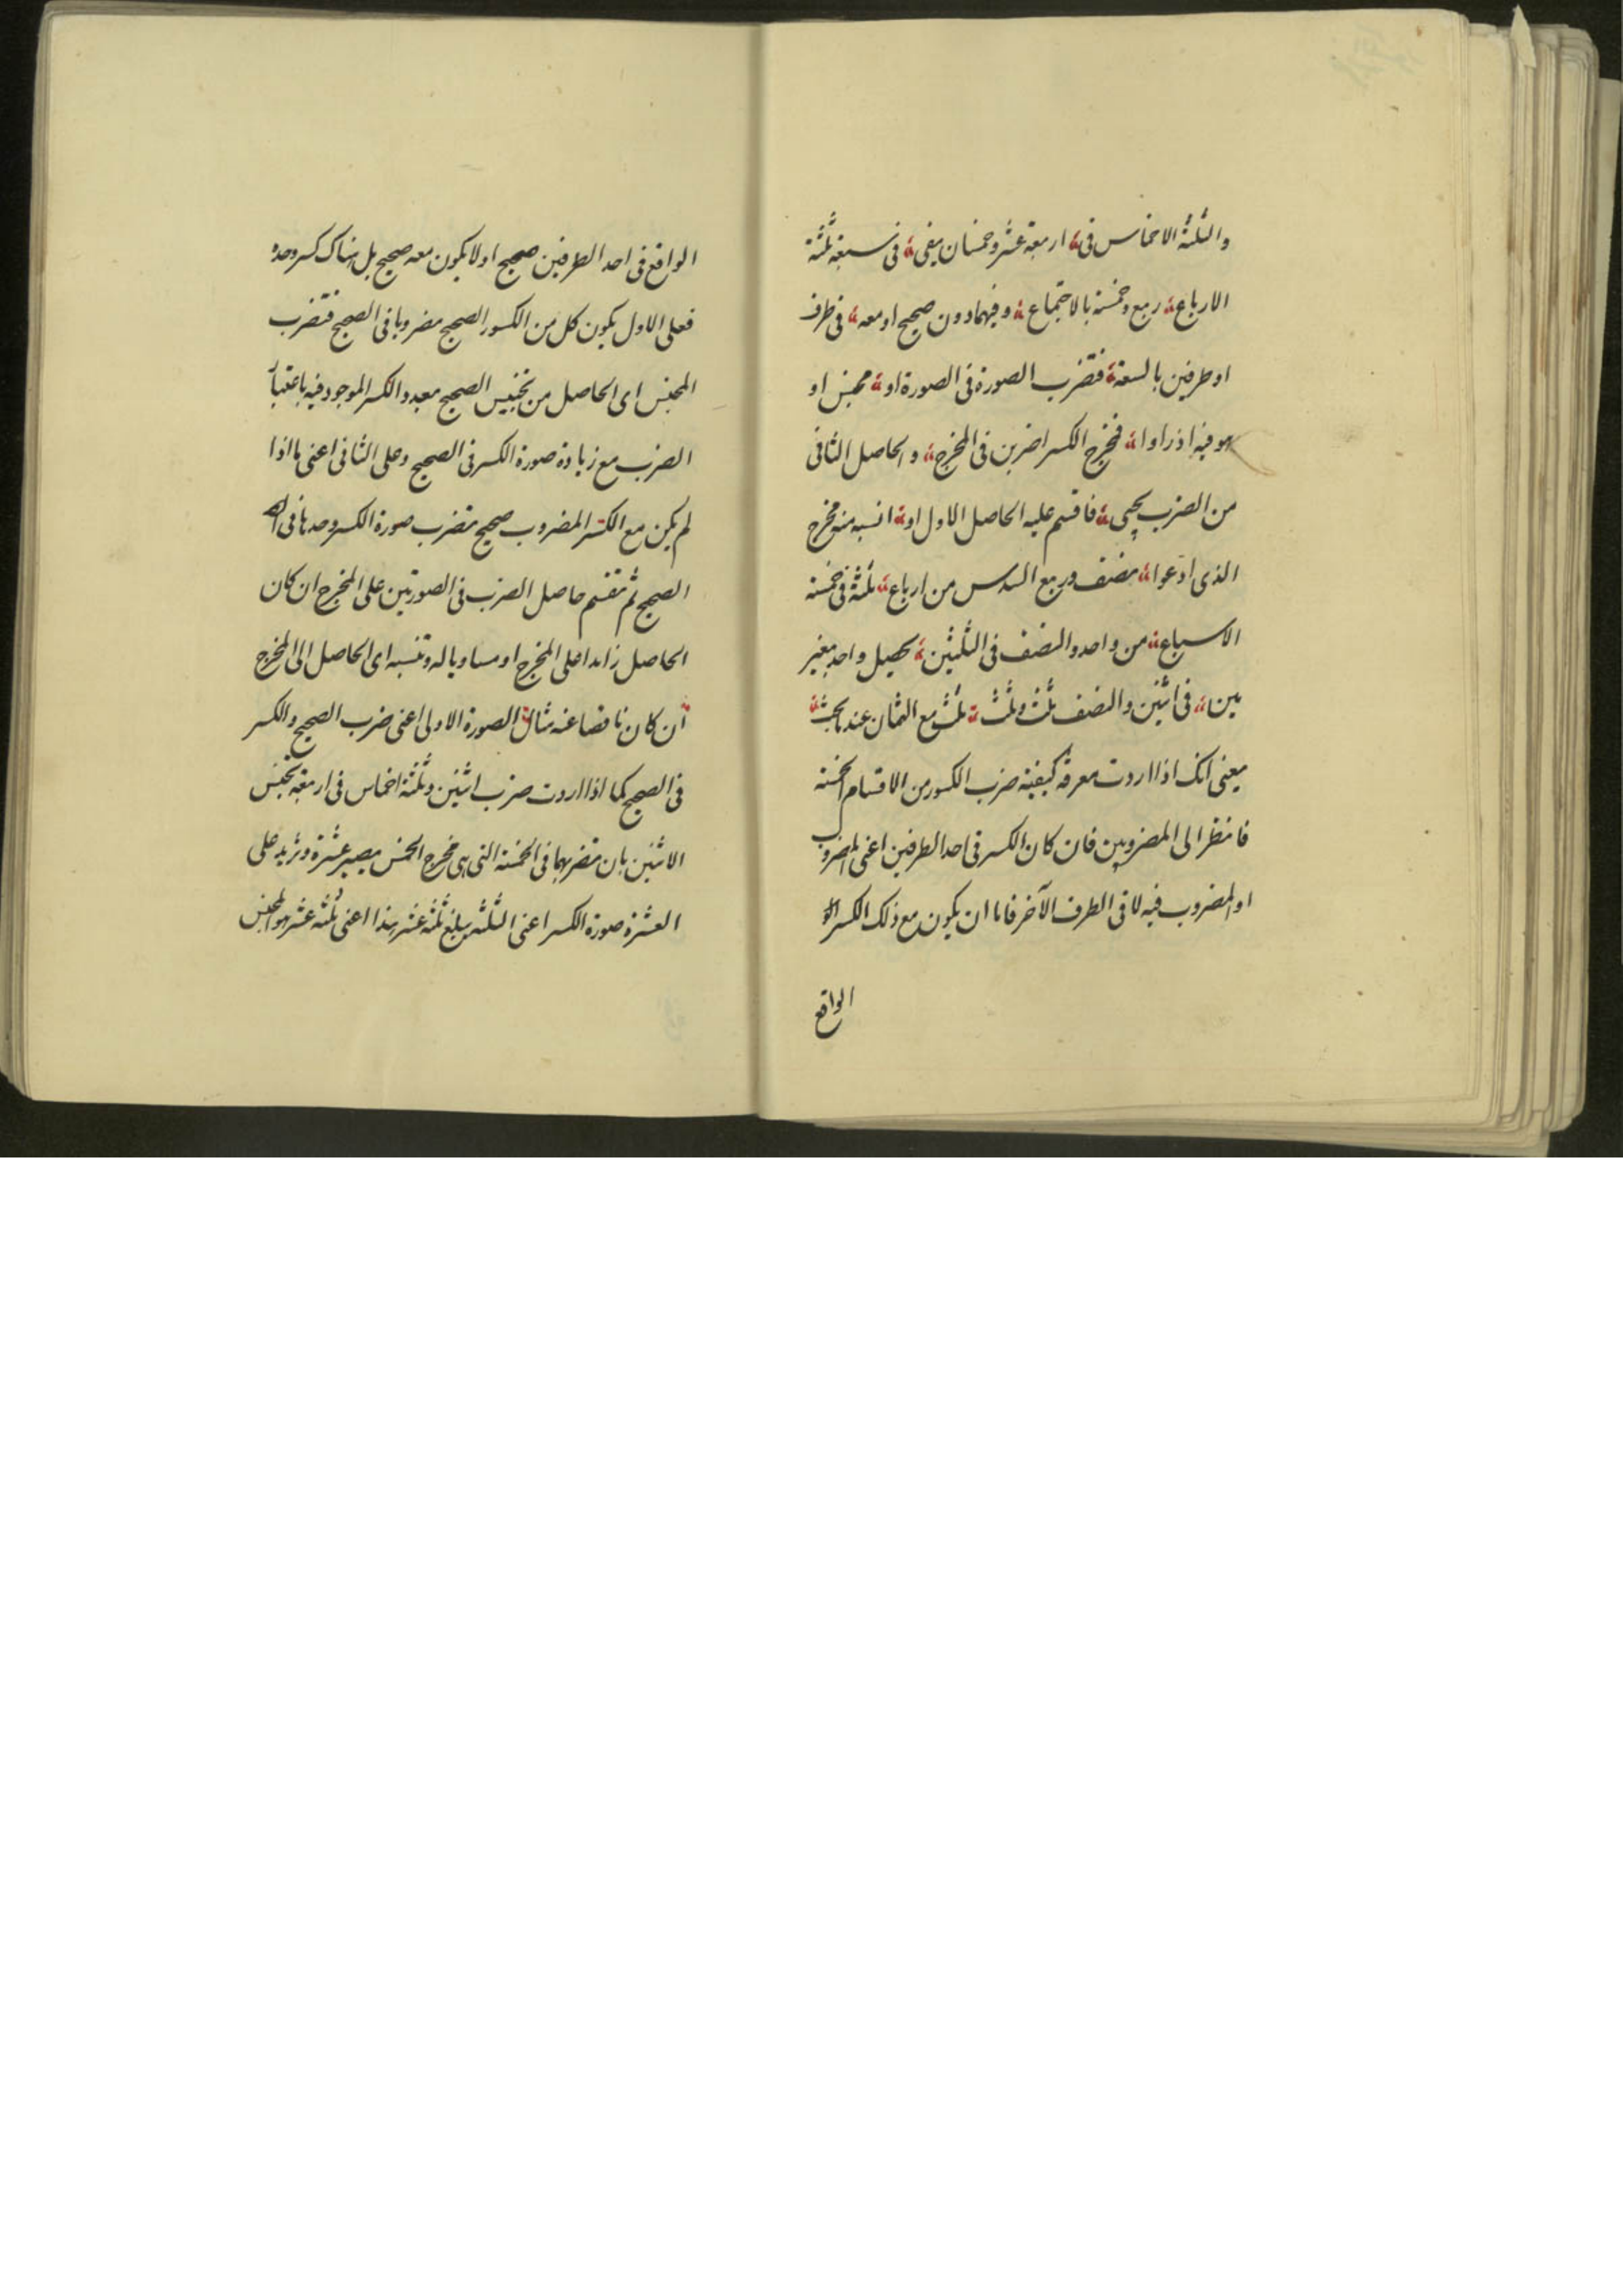 والثلثة الاخماس فى اربعة عشر وخمسان يفى فى سبعة ثلثة
الارباع ربع وخمسة بالاجتماع وفيهما دون صحيح او معه فى طرف
او طرفين بالسعة فتضرب الصورة فى الصورة او مجنس او
هو فيه اذ راوا فمخرج الكسر اضربن فى المخرج والحاصل الثانى
من الضرب يجى فاقسم عليه الحاصل الاول او انسبه منه مخرج
الذى ادعوا نصف وربع السدس من ارباع ثلثة فى خمسة
الاسباع من واحد والنصف فى الثلثين يحصل واحد بغير
مين فى اثنين والنصف ثلث وثلث ثلث مع الثمان عند
يعنى انك اذا اردت معرفة كيفية ضرب الكسور من الاقسام الخمسة
فانظر الى المضروبين فان كان الكسر فى احد الطرفين اعنى المضروب
او المضروب فيه لا فى الطرف الآخر فاما ان يكون مع ذلك الكسر
الواقع
الواقع فى احد الطرفين صحيح او لا يكون معه صحيح بل هناك كسر وحده
فعلى الاول يكون كل من الكسور الصحيح مضروبا فى الصحيح فتضرب
المجنس اى الحاصل من تجنيس الصحيح معه والكسر الموجود فيه باعتبار
الضرب مع زيادة صورة الكسر فى الصحيح وعلى الثانى اعنى ما اذا
لم يكن مع الكسر المضروب صحيح تضرب صورة الكسر وحدها فى
الصحيح ثم تقسم حاصل الضرب فى الصورتين على المخرج ان كان
الحاصل زايدا على المخرج او مساويا له وتنسبه اى الحاصل الى المخرج
ان كان ناقصا عنه مثال الصورة الاولى اعنى ضرب الصحيح والكسر
فى الصحيح كما اذا اردت ضرب اثنين وثلثة اخماس فى اربعة تجنس
الاثنين بان تضربهما فى الخمسة التى هى مخرج الخمس يصير عشرة وتزيد على
العشرة صورة الكسر اعنى الثلثة يبلغ ثلثة عشر هذا اعنى ثلثة عشر هو المجنس